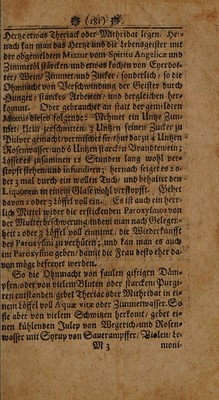 ❀ (181) ❀
Hertz etwas Theriack oder Mithridat legen. Her-
nach kan man das Hertze und die Lebensgeister mit
der obgemeldten Mixtur vom Spiritu Angelicæ und
Zimmetöl stärcken und etwas kochen von Eyerdot-
ter/ Wein/ Zimmet/ und Zucker/ sonderlich/ so die
Ohnmacht von Verschwindung der Geister durch
Hunger/ starckes Arbeiten/ und dergleichen her-
kommt. Oder gebrauchet an statt der gemeldten
Mixtur diesen folgende: Nehmet ein Untze Zim-
met/ klein zerschnitten/ 2 Untzen feinen Zucker zu
Pulver gemacht/ vermischet sie/ thut darzu 4 Untzen
Rosenwasser/ und 6 Untzen starcken Brandtewein;
Lasset es zusammen 12 Stunden lang wohl ver-
stopfft stehen und infundiren; hernach seiget es 2 o-
der 3 mal durch ein wollen Tuch/ und behaltet den
Liquorem in einem Glase wohl verstopfft. Gebet
davon 2 oder 3 Löffel voll ein. Es ist auch ein herr-
lich Mittel wider die ersticken den Paroxysmos von
der Mutterbeschwerung/ indem man nach Gelegen-
heit 1 oder 2 Löffel voll einnimt/ die Wiederkunfft
des Paroxysmi zu verhüten; und kan man es auch
im Paroxysmo geben/ damit die Frau desto eher da-
von möge befreyet werden.
So die Ohnmacht von faulen gifftigen Däm-
pfen/ oder von vielem Bluten oder starcken Purgi-
ren entstanden/ gebet Theriac oder Mithridat in ei-
nem Löffel voll Aquæ vitæ oder Zimmetwasser. So
sie aber von vielem Schwitzen herkomt/ gebet ei-
nen kühlenden Julep von Wegerich- und Rosen-
wasser/ mit Syrup von Sauerampffer/ Violen/ Le-
M 3
moni-